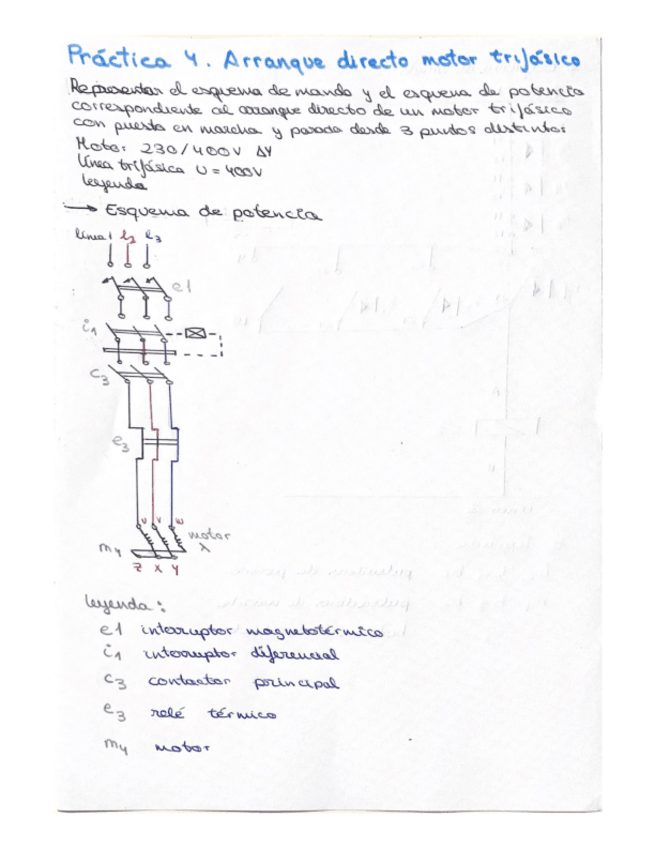 Práctica 4. Arranque directo motor trifásico
Representar el esquema de mando y el esquema de potencia
correspondiente al arranque directo de un motor trifásico
con puesta en marcha y parada desde 3 puntos distintos
Motor 230/400V ΔY
Línea trifásica U = 400V
leyenda
→ Esquema de potencia
línea 1 l2 l3
e1
i1
c3
e3
U V W
motor
m4 λ
Z X Y
leyenda:
e1 interruptor magnetotérmico
i1 interruptor diferencial
c3 contactor principal
e3 relé térmico
m4 motor